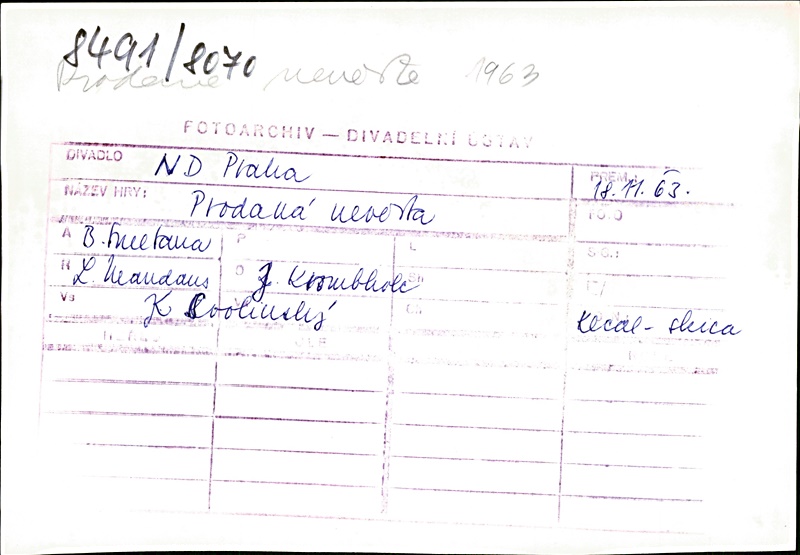 8491/8070
Prodaná nevěsta 1963
FOTOARCHIV — DIVADELNÍ ÚSTAV
DIVADLO ND Praha PREM.: 18.11.63.
NÁZEV HRY: Prodaná nevěsta FOTO
A B. Smetana P L SG.:
R L. Mandaus D J. Krombholc
Vs K Svolinský
Kecal - skica